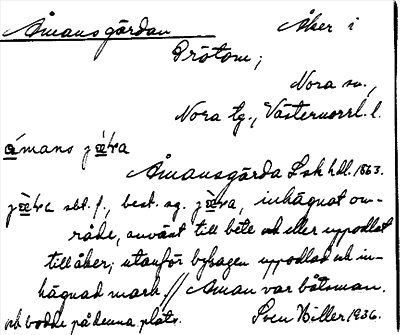 Åmansgärdan Åker i
Prötom;
Nora sn.,
Nora tg., Västernorrl. l.
Åmansgärda Lsk hdl. 1863.
sbt. f., best. sg. inhägnat om-
råde, använt till bete och eller uppodlat
till åker; utanför bybagen uppodlad och in-
hägnad mark. // Åman var båtsman.
och bodde på denna plats. Sven Hiller. 1936.